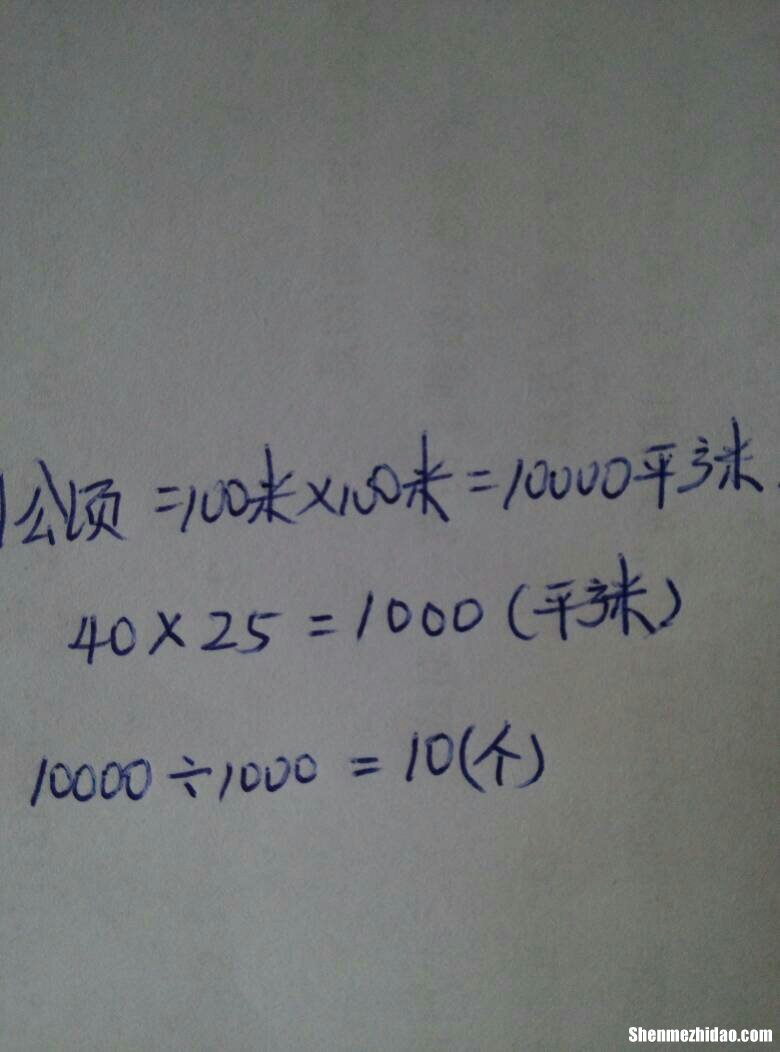 1公顷=100米×100米=10000平方米.
40×25=1000(平方米)
10000÷1000=10(个)
Shenmezhidao.com